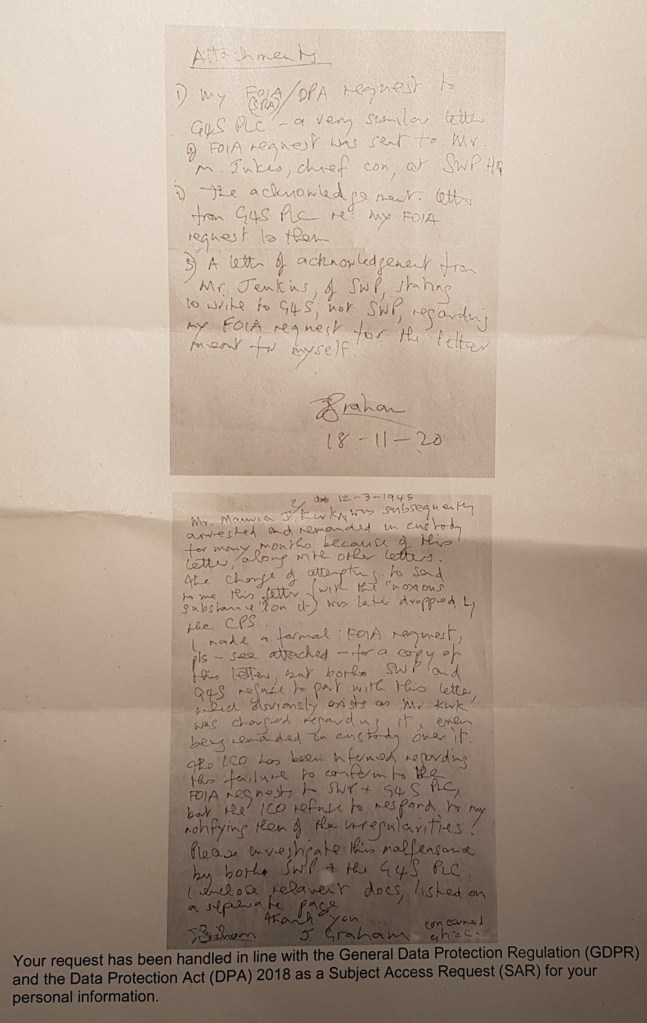 Attachments
1) My FOIA/DPA request to
(DPA)
G4S PLC - a very similar letter
of FOIA request was sent to Mr.
M. Jukes, chief con, at SWP HQ
2) The acknowledgement letter
from G4S PLC re: my FOIA
request to them
3) A letter of acknowledgement from
Mr. Jenkins, of SWP, stating
to write to G4S, not SWP, regarding
my FOIA request for the letter
meant for myself.
JGraham
18-11-20
12-3-1945
Mr. J Kirk, was subsequently
arrested and remanded in custody
for many months because of this
letter, along with other letters.
The charge of attempting to send
to me this letter (with the "noxious
substance" on it) was later dropped by
the CPS.
I made a formal FOIA request,
pls - see attached - for a copy of
this letter, but both SWP and
G4S refuse to part with this letter,
which obviously exists as Mr Kirk
was charged regarding it, even
being remanded in custody over it.
The ICO has been informed regarding
this failure to conform to the
FOIA requests to SWP + G4S PLC,
but the ICO refuse to respond to my
notifying them of the irregularities!
Please investigate this malfeasance
by both SWP + the G4S PLC.
I enclose relevant docs, listed on
a separate page
Thank you
JGraham J. Graham concerned
Your request has been handled in line with the General Data Protection Regulation (GDPR)
and the Data Protection Act (DPA) 2018 as a Subject Access Request (SAR) for your
personal information.